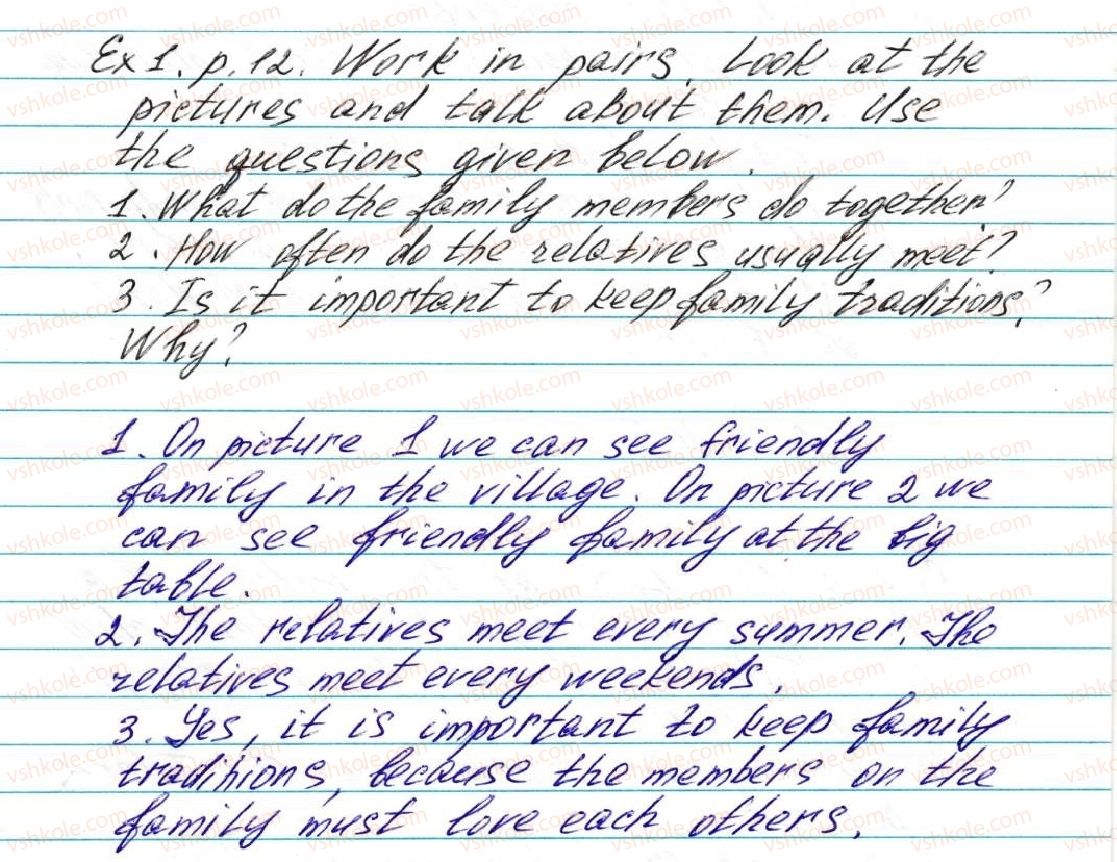 Ex 1. p. 12. Work in pairs. Look at the
pictures and talk about them. Use
the questions given below.
1. What do the family members do together?
2. How often do the relatives usually meet?
3. Is it important to keep family traditions?
Why?
1. On picture 1 we can see friendly
family in the village. On picture 2 we
can see friendly family at the big
table.
2. The relatives meet every summer. The
relatives meet every weekends.
3. Yes, it is important to keep family
traditions, because the members on the
family must love each others.